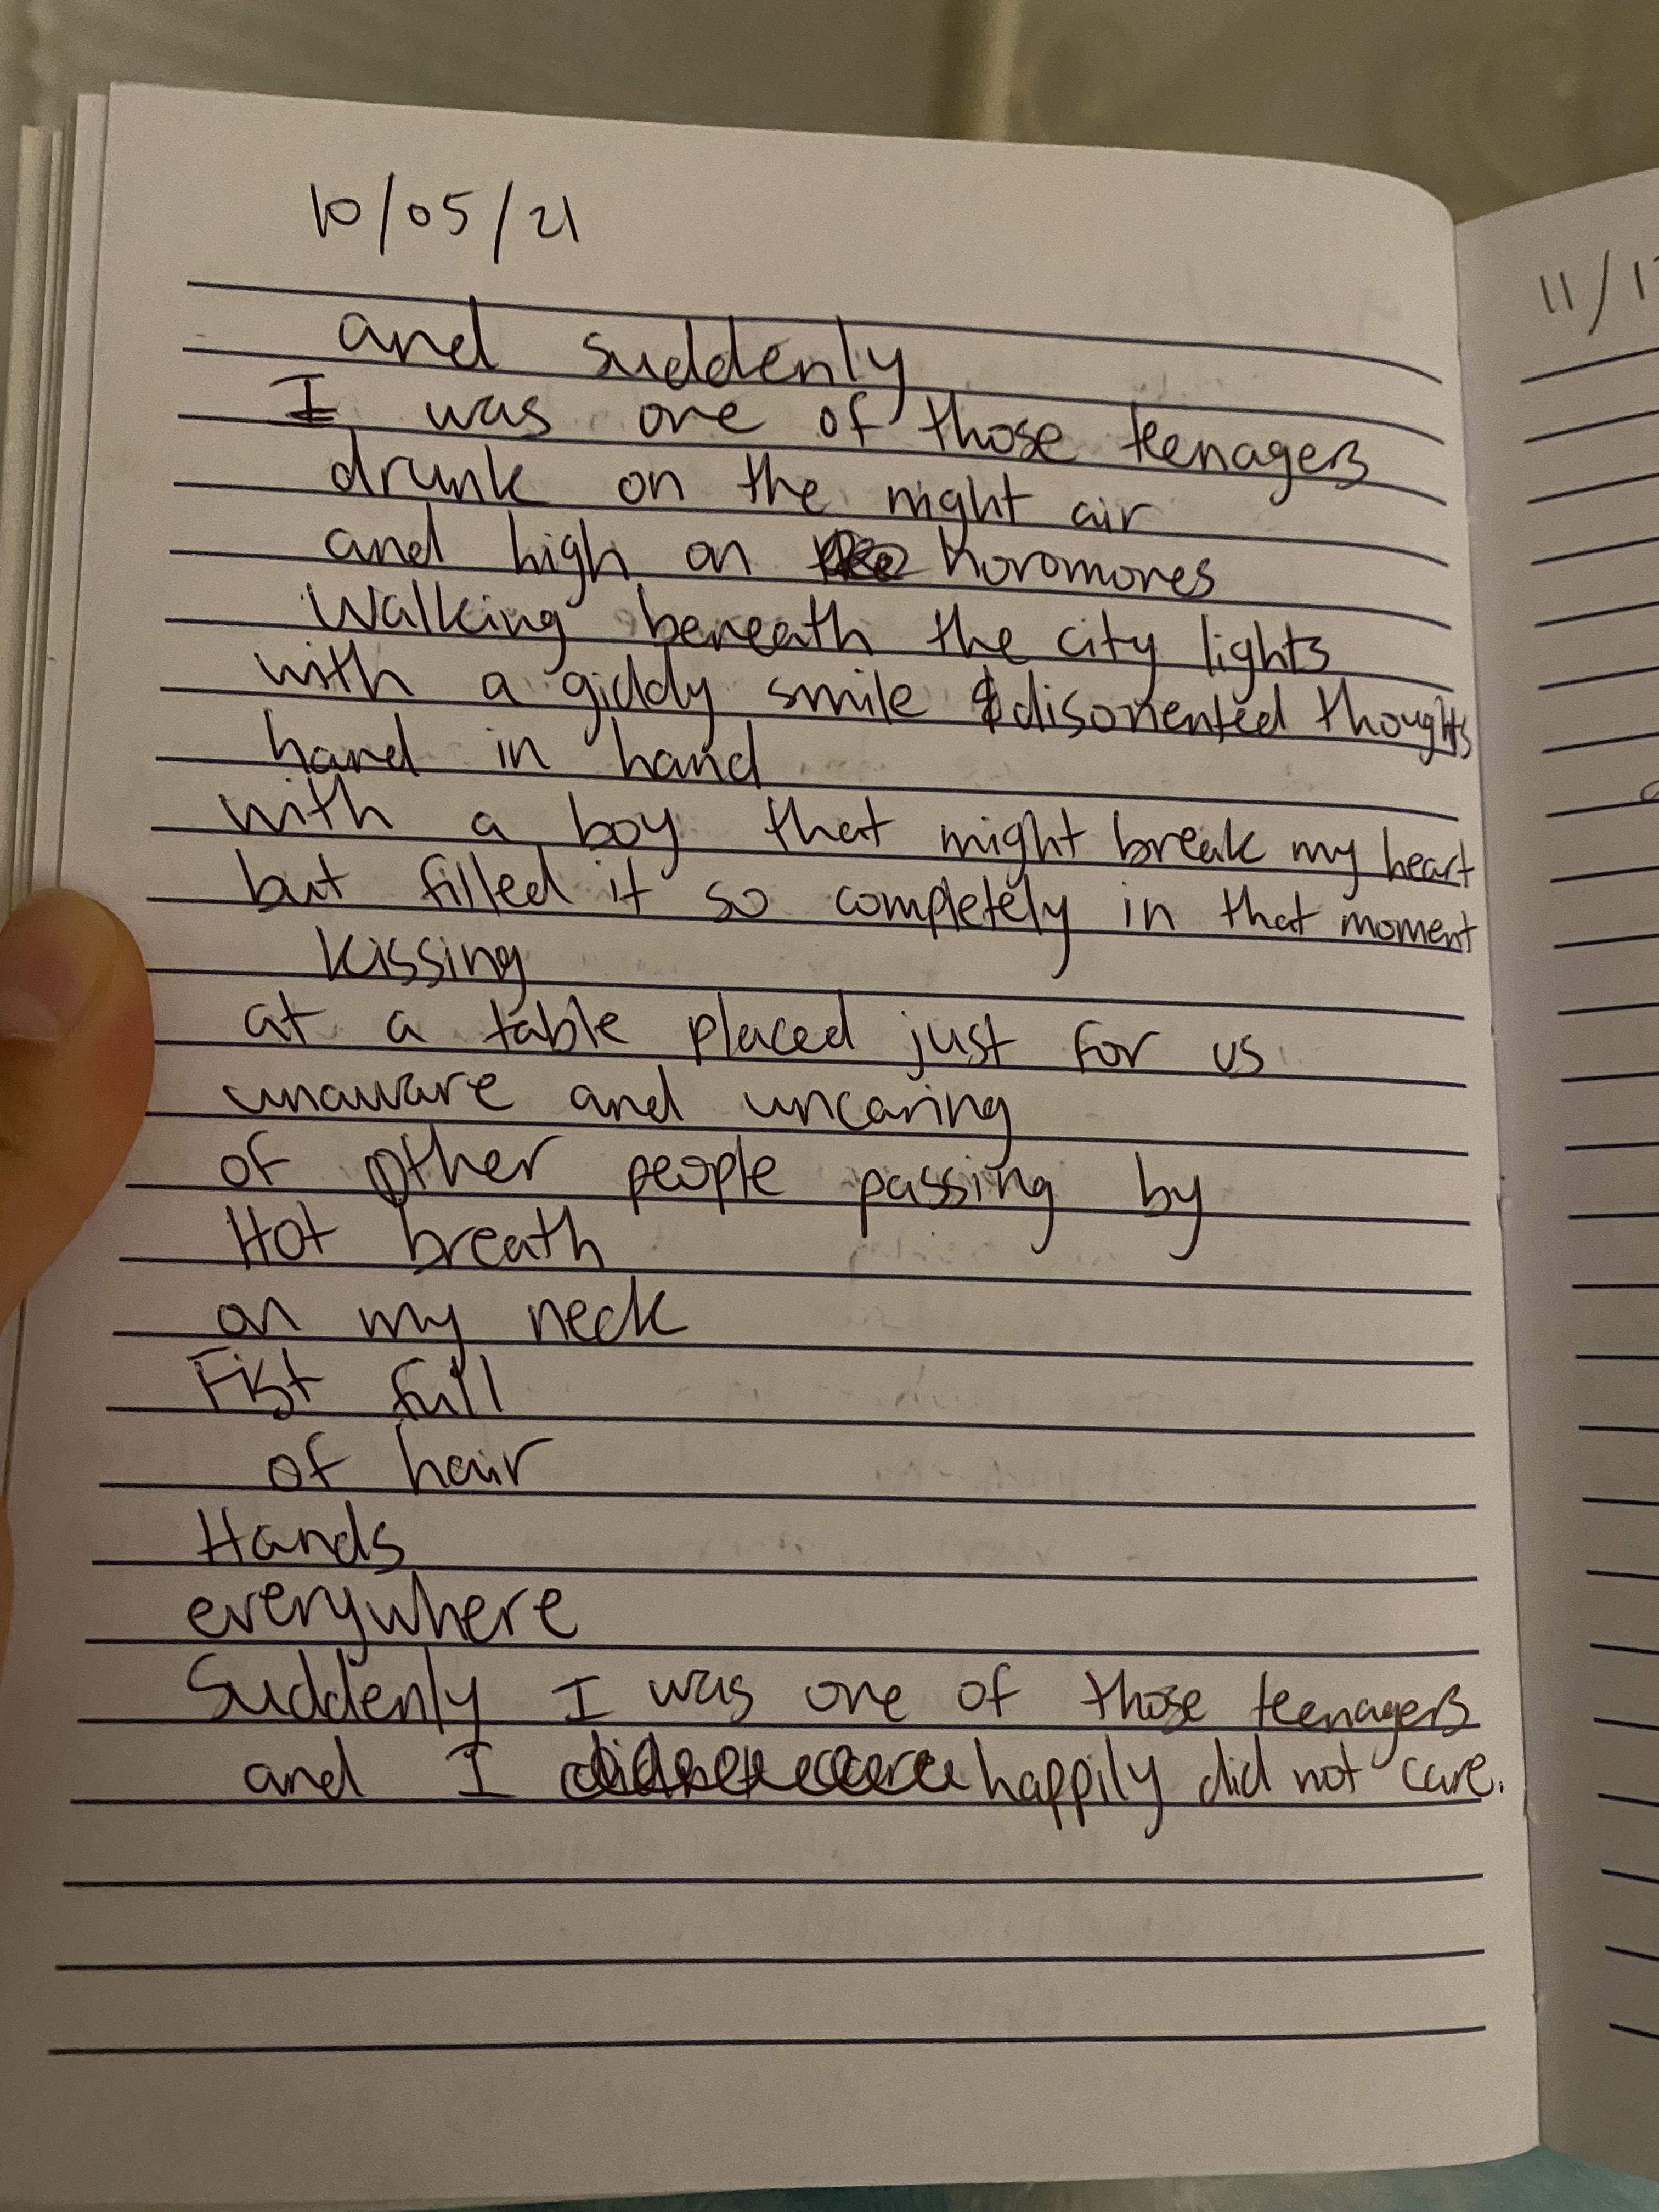 10/05/21
and suddenly
I was one of those teenagers
drunk on the night air
and high on horomones
Walking beneath the city lights
with a giddy smile & disoriented thoughts
hand in hand
with a boy that might break my heart
but filled it so completely in that moment
Kissing
at a table placed just for us
unaware and uncaring
of other people passing by
Hot breath
on my neck
Fist full
of hair
Hands
everywhere
Suddenly I was one of those teenagers
and I happily did not care.
11/1